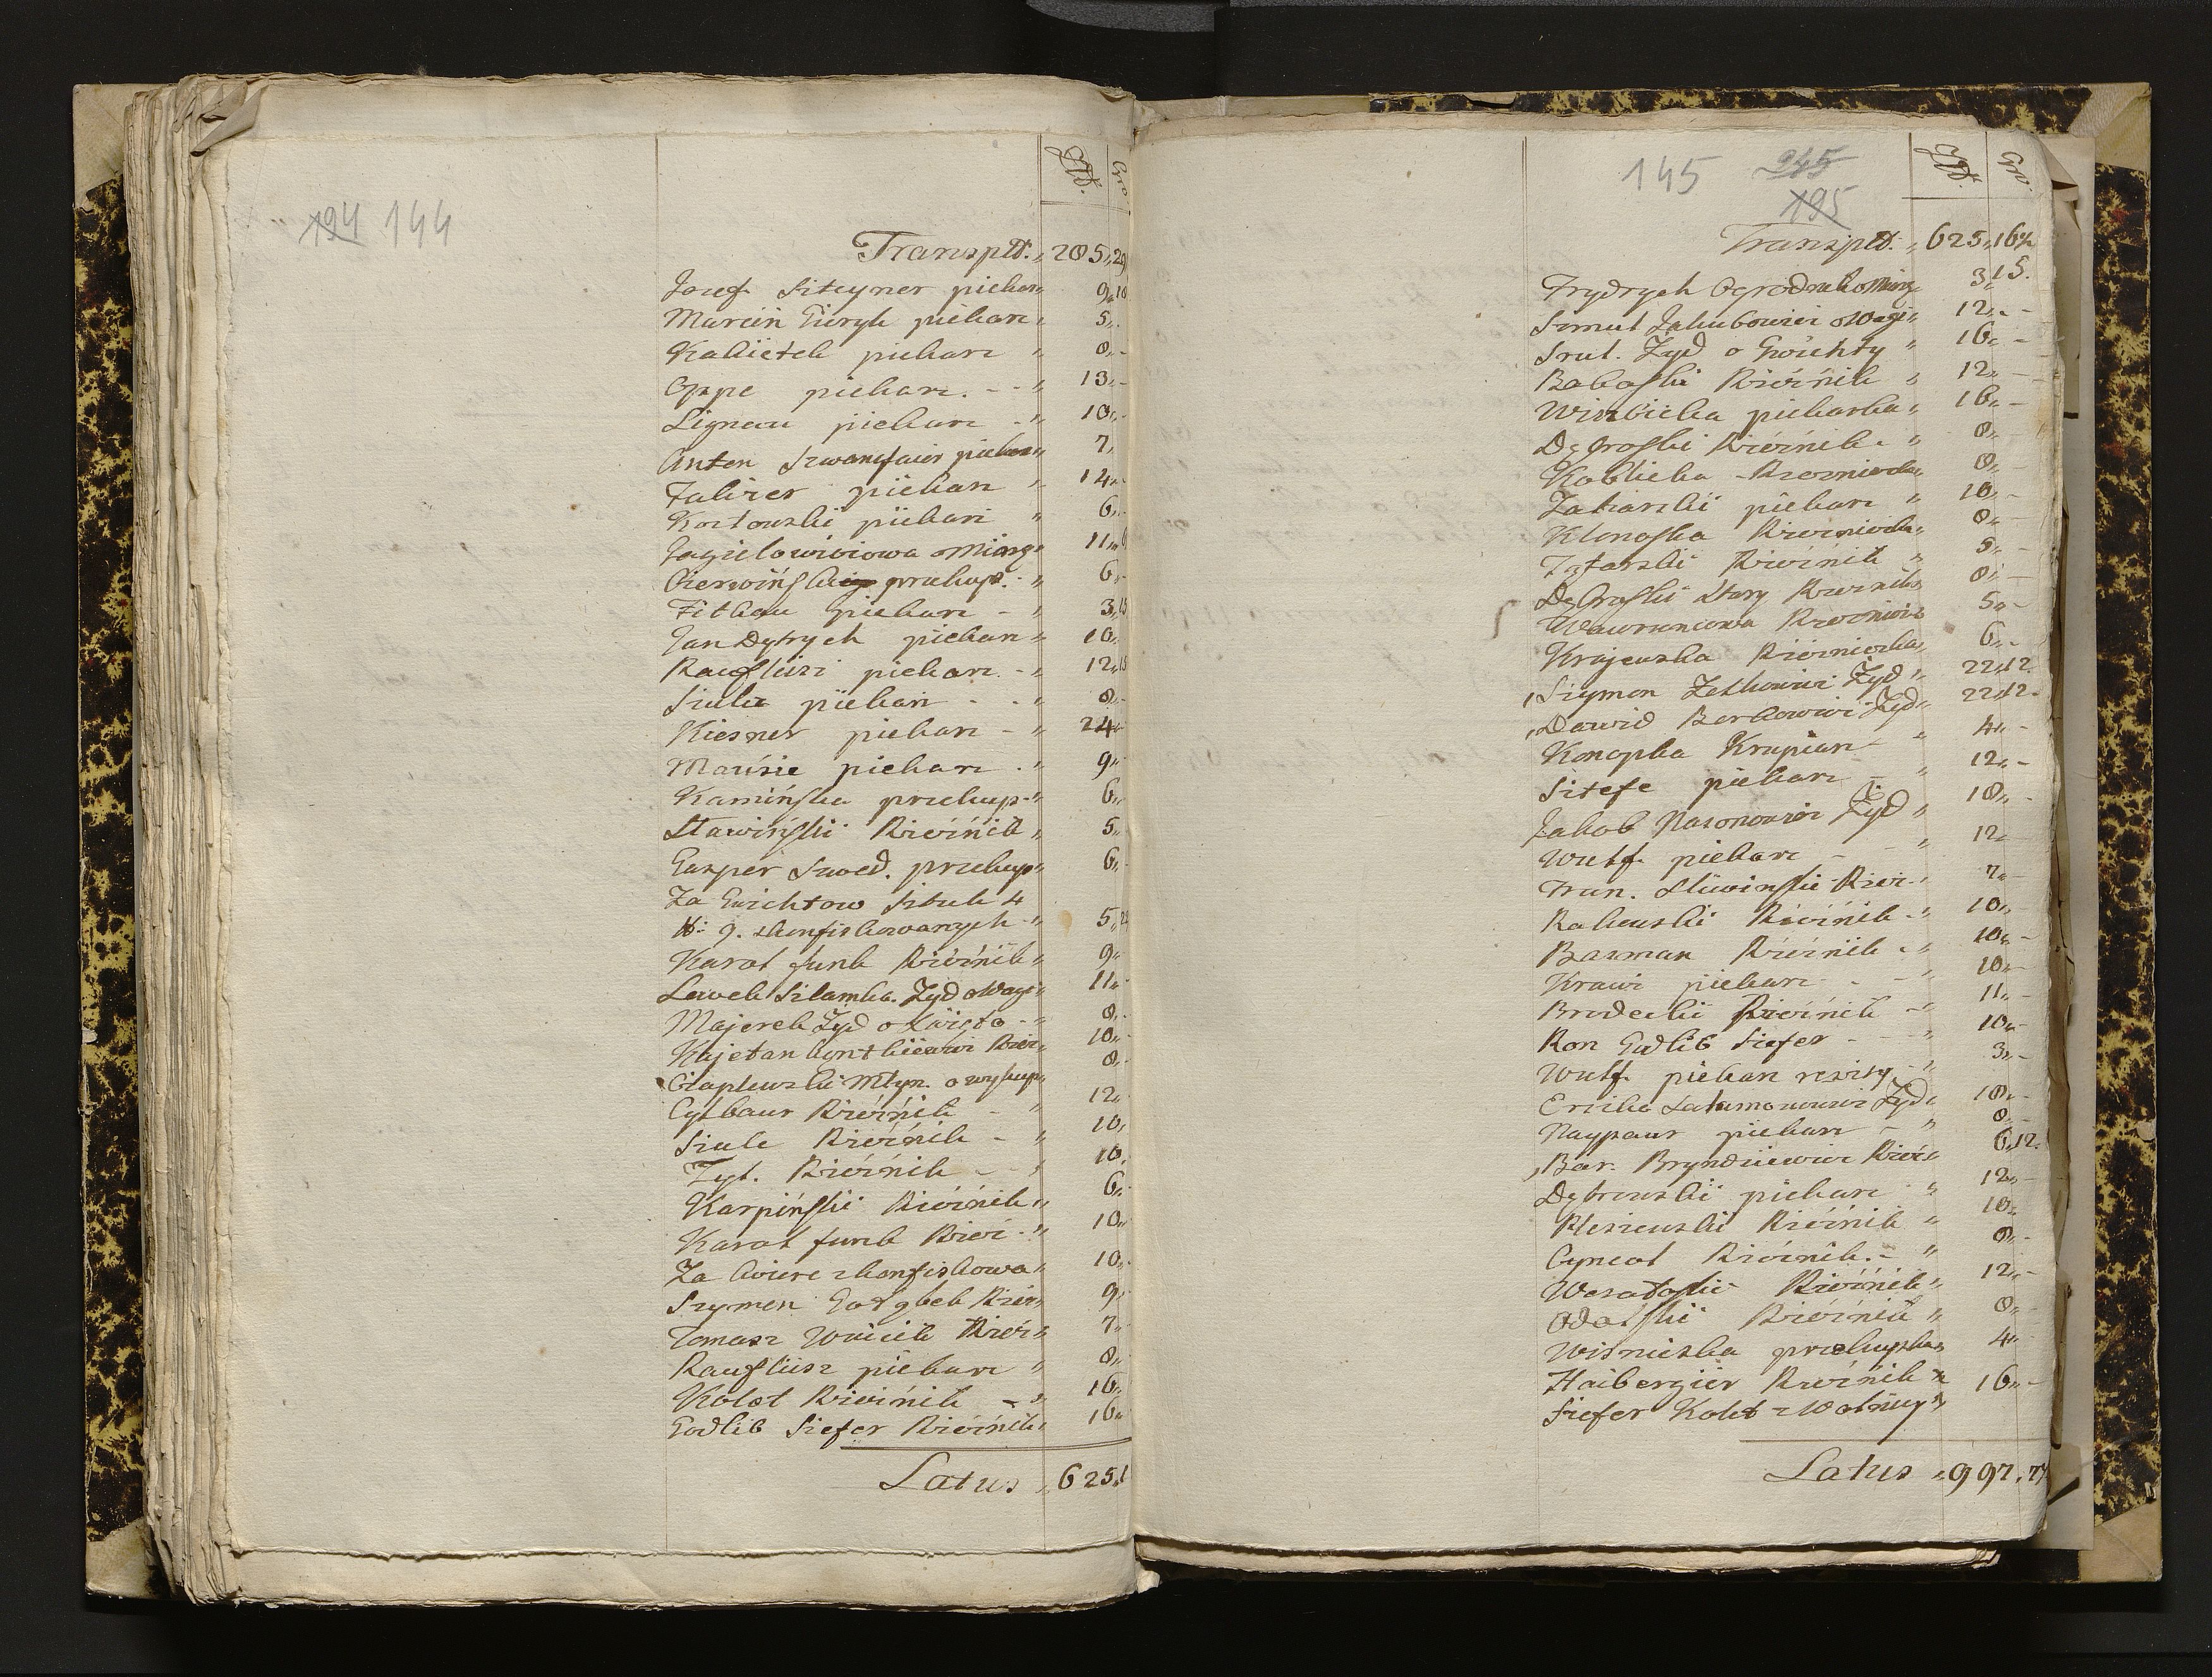 194 144
Złt. Gro.
Transplt. 285 29
Jozef Szteyner piekarz 9 18
Marcin Gieryk piekarz 5
Kakietek piekarz 8
Oppe piekarz 13
Lignau piekarz 10
Anton Szwancfaier piekarz 7
Falirer piekarz 14
Kortowski piekarz 6
Jagielowiczowa o Miarę 11
Czerwiński przekup. 6
Fitkau piekarz 3 15
Jan Dytrych piekarz 10
Raufleisz piekarz 12 15
Szulc piekarz 8
Kiesner piekarz 24
Mausie piekarz 9
Kamińska przekup 6
Stawiński Rzeźnik 5
Gasper Szwed. przekup 6
Za Gwichtow Sztuk 4
g. skonfiskowanych 5 2
Karol funk Rzeźnik 9
Lewek Szlamka Żyd o Wagi 11
Majerek Żyd o Święto 8
Kajetan Rzez 10
Czaplewski Młyn. o wykup 8
Cytbaur Rzeźnik 12
Szule Rzeźnik 10
Zyt. Rzeźnik 10
Karpiński Rzeźnik 6
Karol funk Rzez 10
Za skonfiskowa 10
Szymon Rzez 9
Tomasz Wuicik Rzez 7
Raufleisz piekarz 8
Kolat Rzeźnik 16
Godlib Szefer Rzeźnik 16
Latus 625 1
145 245
195
Złt. Gro.
Transplt. 625 16
Frydrych Ogrodnik o Miarę 3 15.
Szmul Jakubowicz o Wagi 12
Srul. Żyd o Gwichty 16
Baboski Rzeźnik 12
Wierzbicka piekarka 16
Dębroski Rzeźnik 8
Koblicka Rzeznicka 8
Zakarski piekarz 10
Klonoska Rzeznicka 8
Tatarski Rzeźnik 5
Dębroski Stary Rzeznik 8
Wawrzncowa Rzeznicz 5
Krajewska Rzeźnicka 6
Szymon Zelkowicz Żyd 22 12
Dawid Berkowicz Żyd 22 12
Konopka Krupiarz 4
Sztefe piekarz 12
Jakob Nasonowicz Żyd 18
Wulf piekarz 12
Fran. Sliwinski Rzez. 7
Rakowski Rzeźnik 10
Basman Rzeźnik 10
Krawi piekarz 10
Brodecki Rzeźnik 11
Ron Godlib Szefer 10
Wulf piekarz rewizy 3
Ericka Salamonowicz Żyd 18
Naypaur piekarz 8
Bar. Bryndziewicz Rzez 6 12
Dąbrowski piekarz 12
Plesiewski Rzeźnik 10
Cyncol Rzeźnik 8
Wesołoski Rzeźnik 12
Odolski Rzeźnik 8
Wisnieska przekupka 4
Haibergier Rzeźnik
Szefer Kolet z Wolnicy 16
Latus 997 7